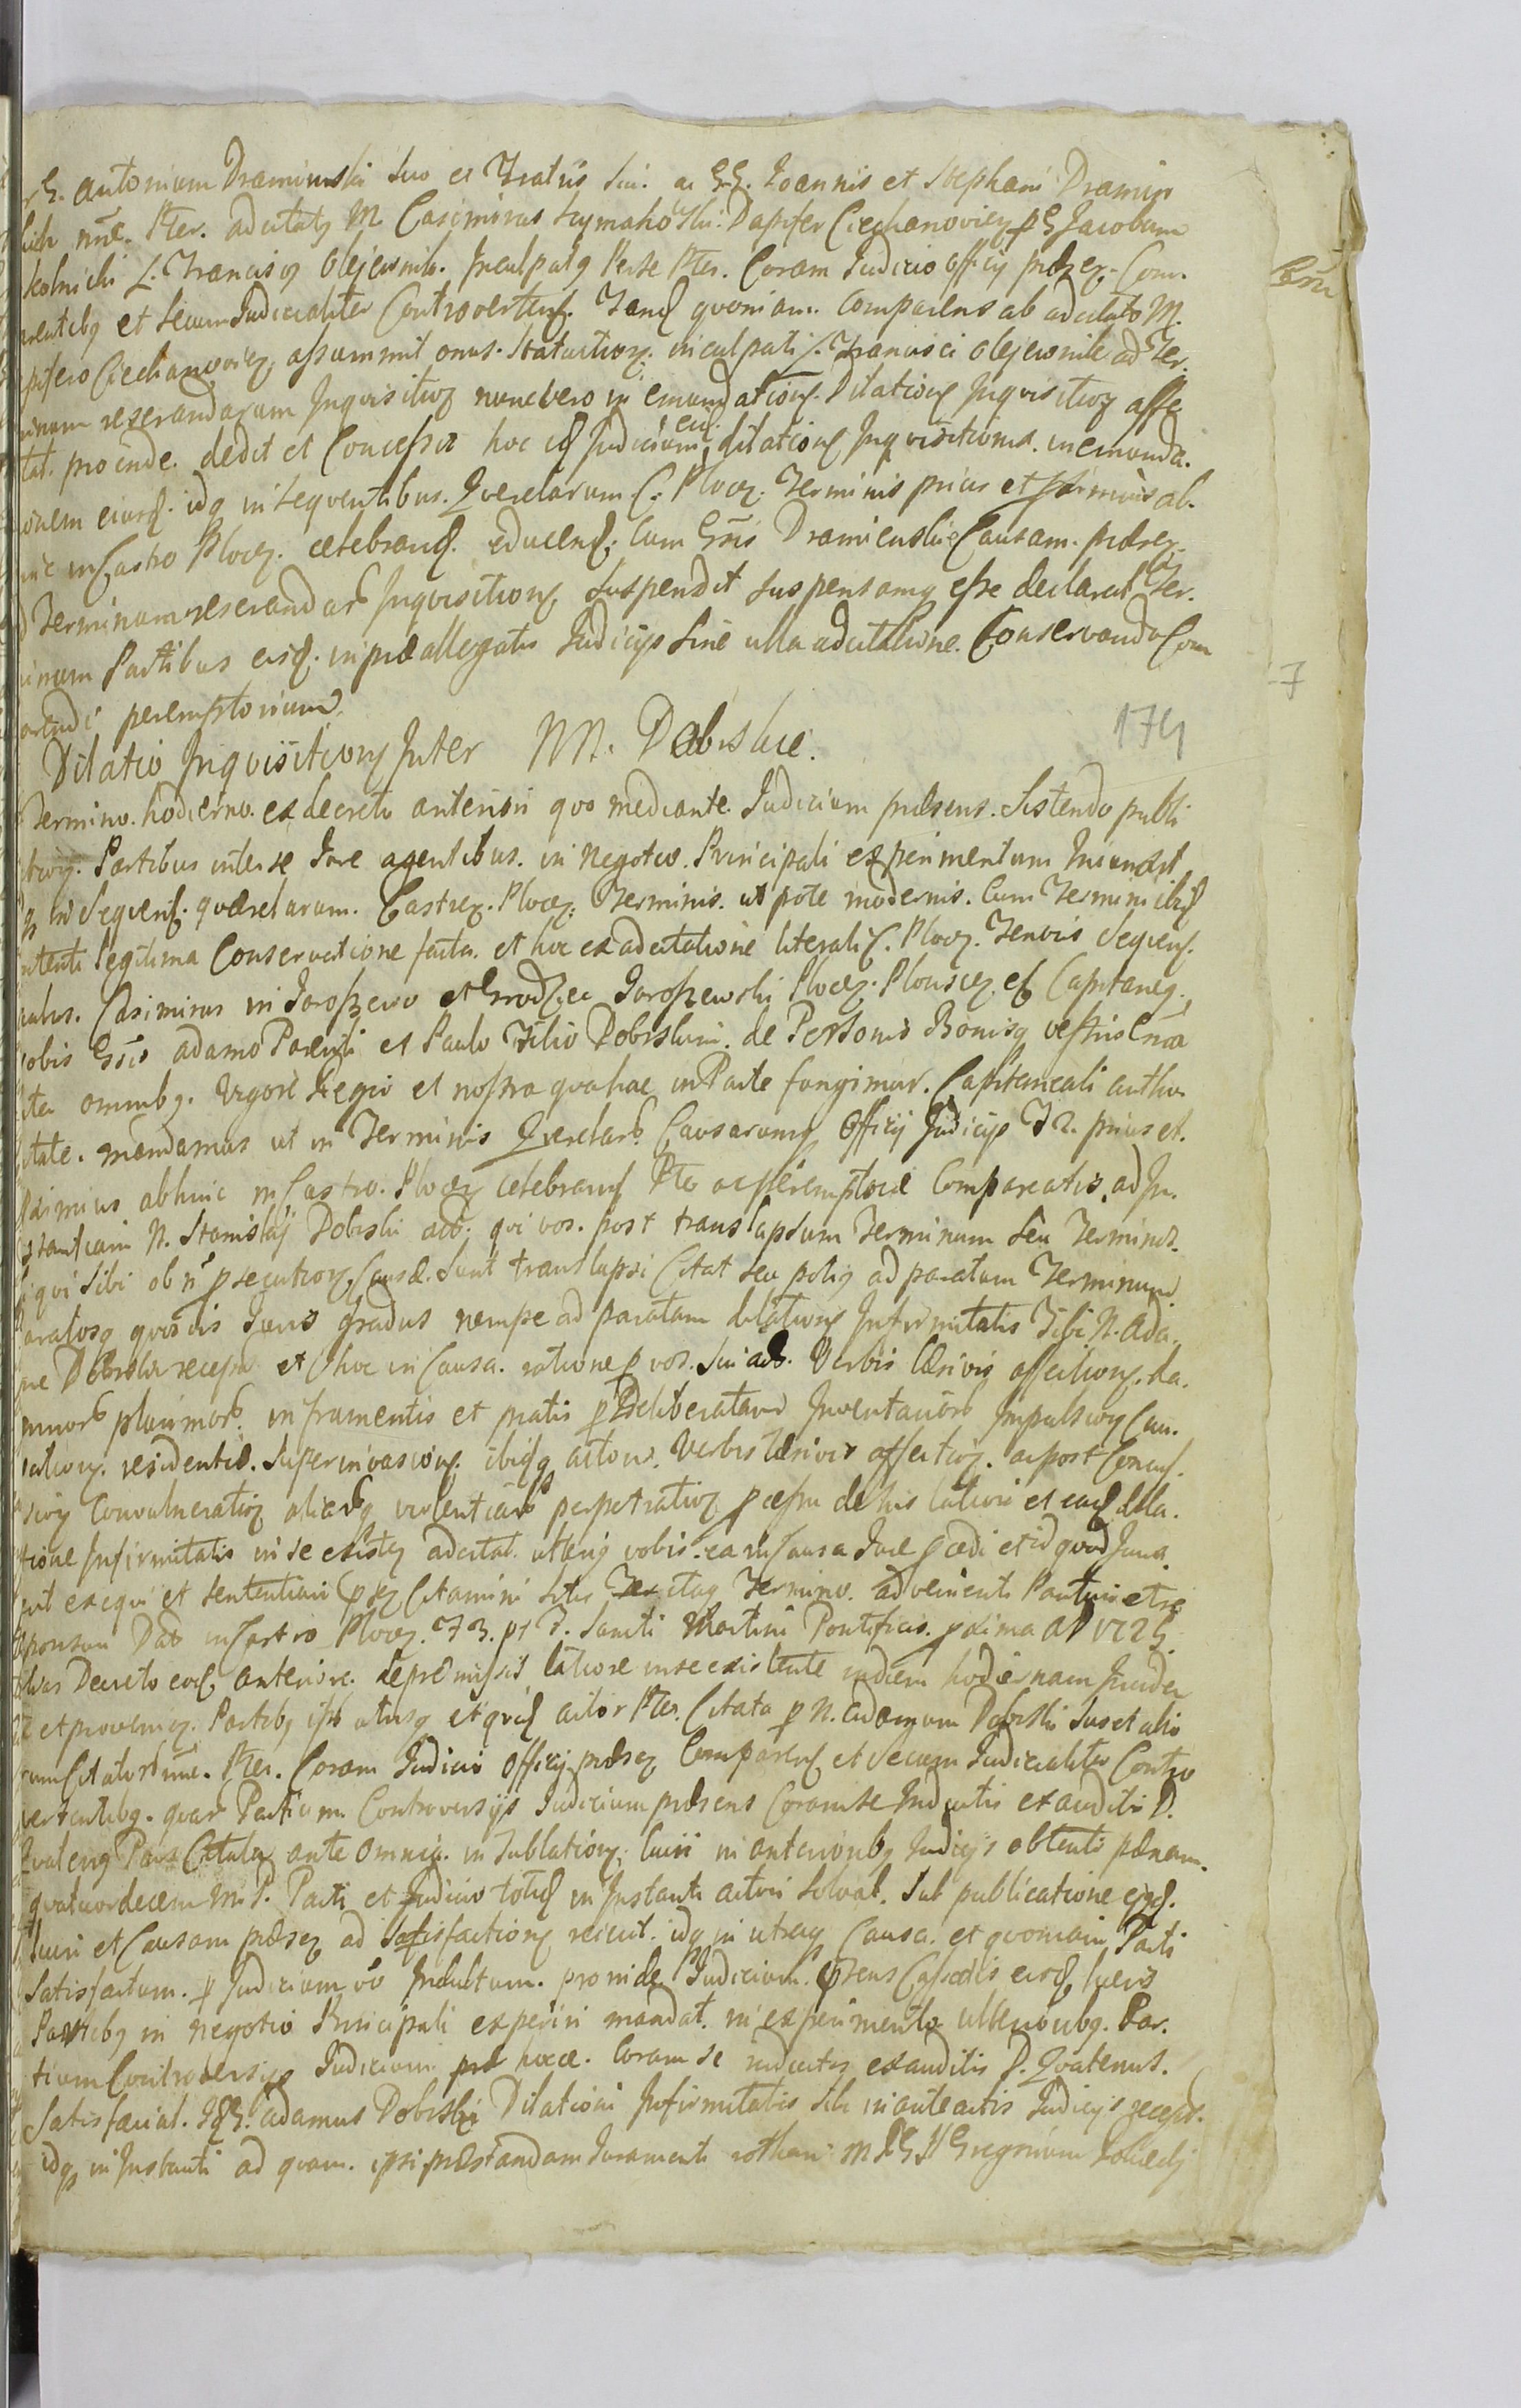 G. Antonium Dramiński suo et Fratris sui. ac G.G. Joannis et Stephani Dramin
skich nne. Pter. adcitatq M. Casimirus Szymakoski. Dapifer Ciechanovien p G Jacobum
kolnicki L. Franciscq Olejewnik. Inculpatq Perse Pter. Coram Judicio Officij præsen. Com.
parentibq et secum Judicialiter Controvertend. Tand quoniam. Comparens ab adcitato M.
pifero Ciechanovien assummit onus. Statuition. inculpati L. Francisci Olejewnik ad Ter.
minum reserandarum Inquisition nunc vero in emundation. Dilation Inquisition affe
tat. proinde. dedit et Concessit hoc id Judicium eid. dilation Inquisitionis. in emunda.
tionem eiusd. idq in sequentibus. Querelarum C. Plocen. Terminis prius et proximius ab.
hinc in Castro Plocen. celebrand. educend. Cum Gnsis Dramienskie Causam. præsen.
d Terminum reserandar Inquisition suspendit suspensamq esse declarat Ter.
minum Partibus eisd. in præallegatis Judicijs sine ulla adcitatione. Conservando Com
parendi peremptorium.
174
Dilatio Inquisition Inter NN. Dobskie.
Termino. hodierno. ex decreto anteriori quo mediante. Judicium præsens. Sistendo publi
Partibus inter se Jure agentibus. in Negotio. Principali experimentum Iniunxit
in Sequend. quærelarum. Castren. Plocen. Terminis. ut pote modernis. Cum Termini ibid
legitima Conservatione facta. et hoc ex adcitatione literali C. Plocen. Tenoris Sequens.
Casimirus in Jaroszewo et Grodziec Jaroszewski Plocen. Plonscen et Capitaneq.
vobis Gnsis Adamo Parenti et Paulo Filio Dobskim. de Personis Bonisq vestris Gna
omnibq. Vigore Regio et nostra qua hac in Parte fungimur. Capitaneali autho
ritate. mandamus ut in Terminis Querelar Causarumq Officij Judicijs F 2. prius et.
proximius abhinc in Castro. Plocen celebrand Pter ac peremptorie Compareatis. ad In.
stantiam N. Stanislaj Dobski act. qui vos. post translapsum Terminum seu Terminos.
si qui sibi ob n prosecution Causæ. Sunt translapsi Citat seu potiq ad paratum Terminum.
paratosq quosvis Juris gradus nempe ad paratam dilation Infirmitatis Tibi N. Ada.
me Dobski recepta et hoc in Causa. ratione p vos. sui act. Verbis læsivis affection. da.
mnor plurimor. in frumentis et pratis Deliberatam Inventarior Impulsion Cau.
residentiæ. Superinvasion. ibidq actoris. Verbis læsivis affection. ac post Concus.
sion Convulneration aliarq violentiar perpetration præsen de his latiori et ead dila.
tione Infirmitatis in se existen adcitat. utteriq vobis. ea in Causa Jure procedi et id quod Jura.
erit exequi et sententiari præsen Citamini sitis itaq Termino. advenienti Parituri et re
sponsuri Dat in Castro Plocen. F 3. pt F. Sancti Martini Pontificis. proxima AD 1725.
Decreto eod anteriore. de præmissis latiore in se existente in diem hodiernam Inciden
et provenien. Partibq ipsis utrisq et quid actor Pter. Citata p N. Adamum Dobski suo et alio
rum Citator nne. Pter. Coram Judicio Officij præsen Comparend et secum Judicialiter Contro
vertentibq. quar Partium. Controversijs Judicium præsens Coram se Inductis exauditis D.
Quatenq Pars Citata ante omnia. in Sublation. lucri in anteriorbq Judicijs obtenti pænam.
quatuordecem M.P. Parti et Judicio totid in Instanti actori solvat. Sub publicatione eiusd.
lucri et Causam præsen ad satisfaction reiicit. idq in utraq Causa. et quoniam Parti
satisfactum. p Judicium vo Indultum. proinde Judicium. præsens Cassatis eisd lucris
Partibq in negotio Principali experiri mandat. in experimento ulteriorbq. Par.
tium Controversijs Judicium pro hocce. Coram se inductis exauditis D. Quatenus.
Satisfaciat. Idq. Adamus Dobski Dilationi Infirmitatis sibi in anteactis Judicijs recept.
idq in Instanti ad quam. ipsi præstandam Juramenti rotham M G Gregorium
7